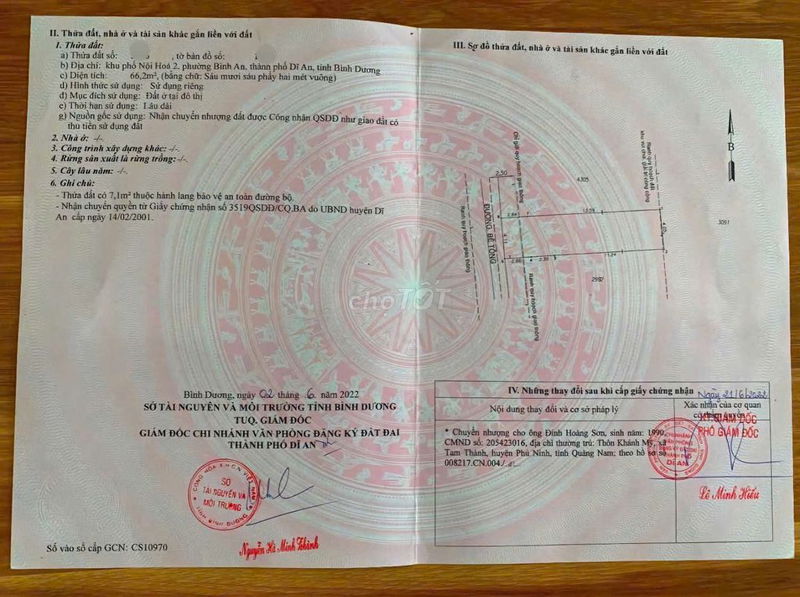 II. Thửa đất, nhà ở và tài sản khác gắn liền với đất
1. Thửa đất:
a) Thửa đất số: , tờ bản đồ số:
b) Địa chỉ: khu phố Nội Hoá 2, phường Bình An, thành phố Dĩ An, tỉnh Bình Dương
c) Diện tích: 66,2m², (bằng chữ: Sáu mươi sáu phẩy hai mét vuông)
d) Hình thức sử dụng: Sử dụng riêng
đ) Mục đích sử dụng: Đất ở tại đô thị
e) Thời hạn sử dụng: Lâu dài
g) Nguồn gốc sử dụng: Nhận chuyển nhượng đất được Công nhận QSDĐ như giao đất có
thu tiền sử dụng đất
2. Nhà ở: -/-
3. Công trình xây dựng khác: -/-
4. Rừng sản xuất là rừng trồng: -/-
5. Cây lâu năm: -/-
6. Ghi chú:
- Thửa đất có 7,1m² thuộc hành lang bảo vệ an toàn đường bộ.
- Nhận chuyển quyền từ Giấy chứng nhận số 3519QSDĐ/CQ.BA do UBND huyện Dĩ
An cấp ngày 14/02/2001.
Bình Dương, ngày 02 tháng 6 năm 2022
SỞ TÀI NGUYÊN VÀ MÔI TRƯỜNG TỈNH BÌNH DƯƠNG
TUQ. GIÁM ĐỐC
GIÁM ĐỐC CHI NHÁNH VĂN PHÒNG ĐĂNG KÝ ĐẤT ĐAI
THÀNH PHỐ DĨ AN
SỞ
TÀI NGUYÊN VÀ
MÔI TRƯỜNG
Nguyễn Hà Minh Thành
Số vào sổ cấp GCN: CS10970
chợTỐT
III. Sơ đồ thửa đất, nhà ở và tài sản khác gắn liền với đất
B
2,50
4305
3091
2992
ĐƯỜNG BÊ TÔNG
Chỉ giới quy hoạch giao thông
Ranh quy hoạch giao thông
Ranh quy hoạch giao thông
IV. Những thay đổi sau khi cấp giấy chứng nhận
Nội dung thay đổi và cơ sở pháp lý
Xác nhận của cơ quan
có thẩm quyền
Ngày 21/6/2022
* Chuyển nhượng cho ông Đinh Hoàng Sơn, sinh năm: 1990,
CMND số: 205423016, địa chỉ thường trú: Thôn Khánh Mỹ, xã
Tam Thành, huyện Phú Ninh, tỉnh Quảng Nam; theo hồ sơ số
008217.CN.004
KT.GIÁM ĐỐC
PHÓ GIÁM ĐỐC
DĨ AN
Lê Minh Hiếu